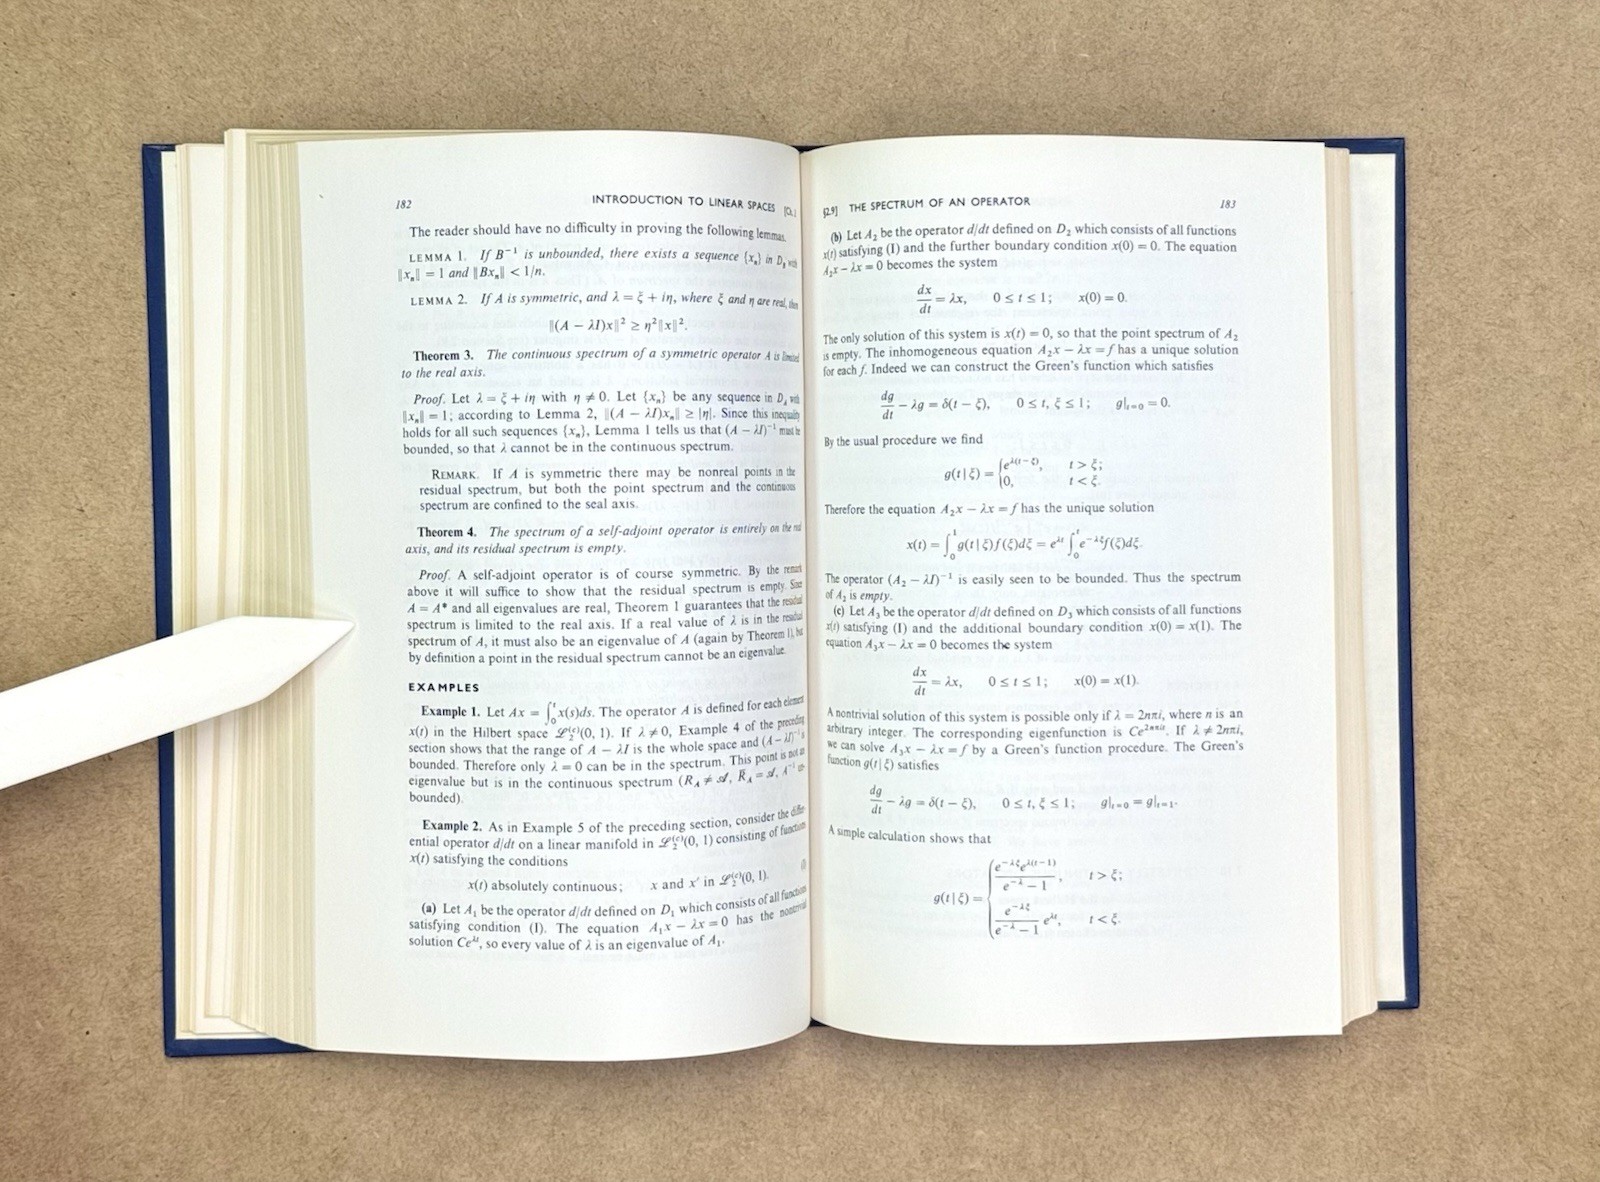 182 INTRODUCTION TO LINEAR SPACES [Ch.
The reader should have no difficulty in proving the following lemmas.
LEMMA 1. If B⁻¹ is unbounded, there exists a sequence {xₙ} in D_B with
‖xₙ‖ = 1 and ‖Bxₙ‖ < 1/n.
LEMMA 2. If A is symmetric, and λ = ξ + iη, where ξ and η are real, then
‖(A − λI)x‖² ≥ η²‖x‖².
Theorem 3. The continuous spectrum of a symmetric operator A is limited
to the real axis.
Proof. Let λ = ξ + iη with η ≠ 0. Let {xₙ} be any sequence in D_A with
‖xₙ‖ = 1; according to Lemma 2, ‖(A − λI)xₙ‖ ≥ |η|. Since this inequality
holds for all such sequences {xₙ}, Lemma 1 tells us that (A − λI)⁻¹ must be
bounded, so that λ cannot be in the continuous spectrum.
REMARK. If A is symmetric there may be nonreal points in the
residual spectrum, but both the point spectrum and the continuous
spectrum are confined to the seal axis.
Theorem 4. The spectrum of a self-adjoint operator is entirely on the real
axis, and its residual spectrum is empty.
Proof. A self-adjoint operator is of course symmetric. By the remark
above it will suffice to show that the residual spectrum is empty. Since
A = A* and all eigenvalues are real, Theorem 1 guarantees that the residual
spectrum is limited to the real axis. If a real value of λ is in the residual
spectrum of A, it must also be an eigenvalue of A (again by Theorem 1), but
by definition a point in the residual spectrum cannot be an eigenvalue.
EXAMPLES
Example 1. Let Ax = ∫₀ᵗ x(s)ds. The operator A is defined for each element
x(t) in the Hilbert space ℒ₂⁽ᶜ⁾(0, 1). If λ ≠ 0, Example 4 of the preceding
section shows that the range of A − λI is the whole space and (A − λI)⁻¹ is
bounded. Therefore only λ = 0 can be in the spectrum. This point is not an
eigenvalue but is in the continuous spectrum (R_A ≠ 𝒜, R̄_A = 𝒜, A⁻¹ un-
bounded).
Example 2. As in Example 5 of the preceding section, consider the differ-
ential operator d/dt on a linear manifold in ℒ₂⁽ᶜ⁾(0, 1) consisting of functions
x(t) satisfying the conditions
x(t) absolutely continuous; x and x′ in ℒ₂⁽ᶜ⁾(0, 1).
(a) Let A₁ be the operator d/dt defined on D₁ which consists of all functions
satisfying condition (I). The equation A₁x − λx = 0 has the nontrivial
solution Ce^{λt}, so every value of λ is an eigenvalue of A₁.
[2.9] THE SPECTRUM OF AN OPERATOR 183
(b) Let A₂ be the operator d/dt defined on D₂ which consists of all functions
x(t) satisfying (I) and the further boundary condition x(0) = 0. The equation
A₂x − λx = 0 becomes the system
dx/dt = λx, 0 ≤ t ≤ 1; x(0) = 0.
The only solution of this system is x(t) = 0, so that the point spectrum of A₂
is empty. The inhomogeneous equation A₂x − λx = f has a unique solution
for each f. Indeed we can construct the Green's function which satisfies
dg/dt − λg = δ(t − ξ), 0 ≤ t, ξ ≤ 1; g|ₜ₌₀ = 0.
By the usual procedure we find
g(t|ξ) = {e^{λ(t−ξ)}, t > ξ;
0, t < ξ.
Therefore the equation A₂x − λx = f has the unique solution
x(t) = ∫₀¹ g(t|ξ)f(ξ)dξ = e^{λt} ∫₀ᵗ e^{−λξ}f(ξ)dξ.
The operator (A₂ − λI)⁻¹ is easily seen to be bounded. Thus the spectrum
of A₂ is empty.
(c) Let A₃ be the operator d/dt defined on D₃ which consists of all functions
x(t) satisfying (I) and the additional boundary condition x(0) = x(1). The
equation A₃x − λx = 0 becomes the system
dx/dt = λx, 0 ≤ t ≤ 1; x(0) = x(1).
A nontrivial solution of this system is possible only if λ = 2nπi, where n is an
arbitrary integer. The corresponding eigenfunction is Ce^{2nπit}. If λ ≠ 2nπi,
we can solve A₃x − λx = f by a Green's function procedure. The Green's
function g(t|ξ) satisfies
dg/dt − λg = δ(t − ξ), 0 ≤ t, ξ ≤ 1; g|ₜ₌₀ = g|ₜ₌₁.
A simple calculation shows that
g(t|ξ) = {e^{−λξ}e^{λ(t−1)}/(e^{−λ} − 1), t > ξ;
e^{−λξ}/(e^{−λ} − 1) e^{λt}, t < ξ.